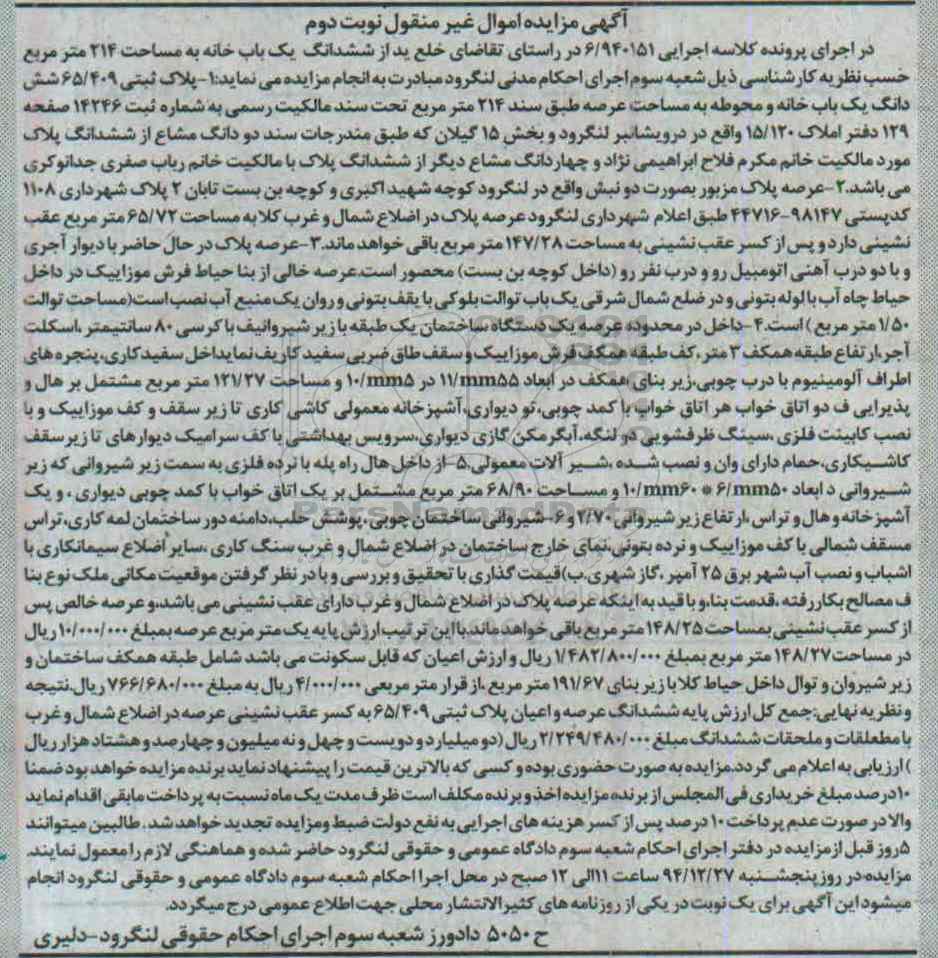 آگهی مزایده اموال غیر منقول نوبت دوم
در اجرای پرونده کلاسه اجرایی ۶/۹۴۰۱۵۱ در راستای تقاضای خلع ید از ششدانگ یک باب خانه به مساحت ۲۱۴ متر مربع
حسب نظریه کارشناسی ذیل شعبه سوم اجرای احکام مدنی لنگرود مبادرت به انجام مزایده می نماید:۱-پلاک ثبتی ۶۵/۴۰۹ شش
دانگ یک باب خانه و محوطه به مساحت عرصه طبق سند ۲۱۴ متر مربع تحت سند مالکیت رسمی به شماره ثبت ۱۴۲۴۶ صفحه
۱۲۹ دفتر املاک ۱۵/۱۲۰ واقع در درویشانبر لنگرود و بخش ۱۵ گیلان که طبق مندرجات سند دو دانگ مشاع از ششدانگ پلاک
مورد مالکیت خانم مکرم فلاح ابراهیمی نژاد و چهاردانگ مشاع دیگر از ششدانگ پلاک با مالکیت خانم رباب صفری جدانوکری
می باشد.۲-عرصه پلاک مزبور بصورت دو نبش واقع در لنگرود کوچه شهید اکبری و کوچه بن بست تابان ۲ پلاک شهرداری ۱۱۰۸
کدپستی ۹۸۱۴۷-۴۴۷۱۶ طبق اعلام شهرداری لنگرود عرصه پلاک در اضلاع شمال و غرب کلا به مساحت ۶۵/۷۲ متر مربع عقب
نشینی دارد و پس از کسر عقب نشینی به مساحت ۱۴۷/۲۸ متر مربع باقی خواهد ماند.۳-عرصه پلاک در حال حاضر با دیوار آجری
و با دو درب آهنی اتومبیل رو و درب نفر رو (داخل کوچه بن بست) محصور است.عرصه خالی از بنا حیاط فرش موزاییک در داخل
حیاط چاه آب با لوله بتونی و در ضلع شمال شرقی یک باب توالت بلوکی با یقف بتونی و روان یک منبع آب نصب است(مساحت توالت
۱/۵۰ متر مربع ) است.۴-داخل در محدوده عرصه یک دستگاه ساختمان یک طبقه با زیر شیروانیف با کرسی ۸۰ سانتیمتر ،اسکلت
آجر،ارتفاع طبقه همکف ۳ متر ،کف طبقه همکف فرش موزاییک و سقف طاق ضربی سفید کاریف نمایداخل سفید کاری،پنجره های
اطراف آلومینیوم با درب چوبی،زیر بنای همکف در ابعاد ۱۱/mm۵۵ در ۱۰/mm۵ و مساحت ۱۲۱/۲۷ متر مربع مشتمل بر هال و
پذیرایی ف دو اتاق خواب هر اتاق خواب با کمد چوبی،تو دیواری،آشپزخانه معمولی کاشی کاری تا زیر سقف و کف موزاییک و با
نصب کابینت فلزی ،سینگ ظرفشویی دو لنگه،آبگرمکن گازی دیواری،سرویس بهداشتی با کف سرامیک دیوارهای تا زیر سقف
کاشیکاری،حمام دارای وان و نصب شده ،شیر آلات معمولی.۵-از داخل هال راه پله با نرده فلزی به سمت زیر شیروانی که زیر
شیروانی د ابعاد ۶/mm۵۰ * ۱۰/mm۶۰ و مساحت ۶۸/۹۰ متر مربع مشتمل بر یک اتاق خواب با کمد چوبی دیواری ، و یک
آشپزخانه و هال و تراس ،ارتفاع زیر شیروانی ۲/۷۰ و ۶-شیروانی ساختمان چوبی ،پوشش حلب،دامنه دور ساختمان لمه کاری،تراس
مسقف شمالی با کف موزاییک و نرده بتونی،نمای خارج ساختمان در اضلاع شمال و غرب سنگ کاری ،سایر اضلاع سیمانکاری با
اشباب و نصب آب شهر برق ۲۵ آمپر ،گاز شهری.ب)قیمت گذاری با تحقیق و بررسی و با در نظر گرفتن موقعیت مکانی ملک نوع بنا
ف مصالح بکار رفته ،قدمت بنا،و با قید به اینکه عرصه پلاک در اضلاع شمال و غرب دارای عقب نشینی می باشد،و عرصه خالص پس
از کسر عقب نشینی بمساحت ۱۴۸/۲۵ متر مربع باقی خواهد ماند،با این ترتیب ارزش پایه یک متر مربع عرصه بمبلغ ۱۰/۰۰۰/۰۰۰ ریال
در مساحت ۱۴۸/۲۷ متر مربع بمبلغ ۱/۴۸۲/۸۰۰/۰۰۰ ریال و ارزش اعیان که قابل سکونت می باشد شامل طبقه همکف ساختمان و
زیر شیروان و توال داخل حیاط کلا با زیر بنای ۱۹۱/۶۷ متر مربع ،از قرار متر مربعی ۴/۰۰۰/۰۰۰ ریال به مبلغ ۷۶۶/۶۸۰/۰۰۰ ریال.نتیجه
و نظریه نهایی:جمع کل ارزش پایه ششدانگ عرصه و اعیان پلاک ثبتی ۶۵/۴۰۹ به کسر عقب نشینی عرصه در اضلاع شمال و غرب
با مطعلقات و ملحقات ششدانگ مبلغ ۲/۲۴۹/۴۸۰/۰۰۰ ریال (دو میلیارد و دویست و چهل و نه میلیون و چهارصد و هشتاد هزار ریال
) ارزیابی به اعلام می گردد.مزایده به صورت حضوری بوده و کسی که بالاترین قیمت را پیشنهاد نماید برنده مزایده خواهد بود ضمنا
۱۰ درصد مبلغ خریداری فی المجلس از برنده مزایده اخذ و برنده مکلف است ظرف مدت یک ماه نسبت به پرداخت مابقی اقدام نماید
والا در صورت عدم پرداخت ۱۰ درصد پس از کسر هزینه های اجرایی به نفع دولت ضبط و مزایده تجدید خواهد شد ، طالبین میتوانند
۵ روز قبل از مزایده در دفتر اجرای احکام شعبه سوم دادگاه عمومی و حقوقی لنگرود حاضر شده و هماهنگی لازم را معمول نمایند.
مزایده در روز پنجشنبه ۹۴/۱۲/۲۷ ساعت ۱۱الی ۱۲ صبح در محل اجرا احکام شعبه سوم دادگاه عمومی و حقوقی لنگرود انجام
میشود این آگهی برای یک نوبت در یکی از روزنامه های کثیرالانتشار محلی جهت اطلاع عمومی درج میگردد.
ح ۵۰۵۰ دادورز شعبه سوم اجرای احکام حقوقی لنگرود-دلیری
ParsNamadData